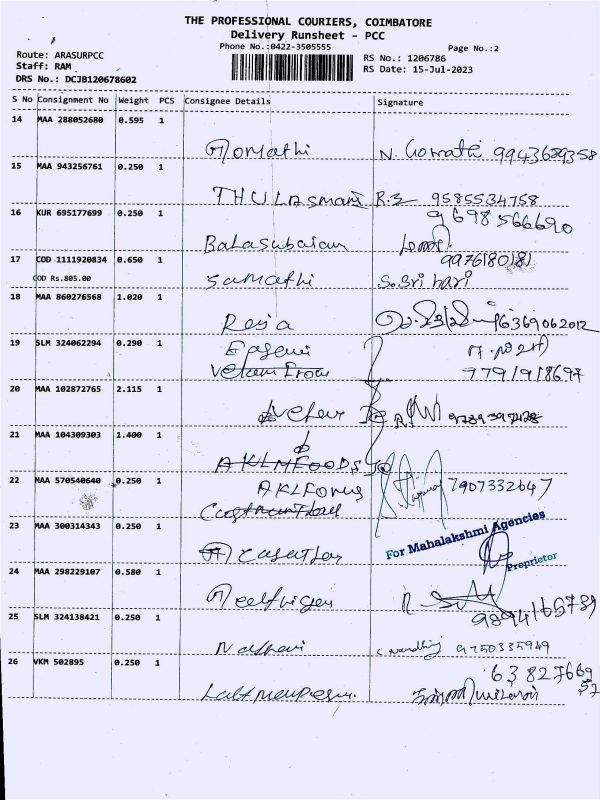 THE PROFESSIONAL COURIERS, COIMBATORE
Delivery Runsheet - PCC
Phone No.:0422-3505555
Page No.:2
Route: ARASURPCC
Staff: RAM
DRS No.: DCJB120678602
RS No.: 1206786
RS Date: 15-Jul-2023
S No Consignment No Weight PCS Consignee Details Signature
14 MAA 288052680 0.595 1
Gomathi N. Gomathi 9943689358
15 MAA 943256761 0.250 1
THULASMANI R.S 9585534758
16 KUR 695177699 0.250 1 9698566690
Balasubaiam
17 COD 1111920834 0.650 1 9976180181
COD Rs.805.00
Sumathi S. Sri hari
18 MAA 860276568 1.020 1
Reja 6369062012
19 SLM 324062294 0.290 1
9791918697
20 MAA 102872765 2.115 1
21 MAA 104309303 1.400 1
AKLMFOODS
22 MAA 570540640 0.250 1
7907332647
23 MAA 300314343 0.250 1
For Mahalakshmi Agencies
Proprietor
24 MAA 298229107 0.580 1
9894165739
25 SLM 324138421 0.250 1
9750335949
26 VKM 502895 0.250 1
63827669
57